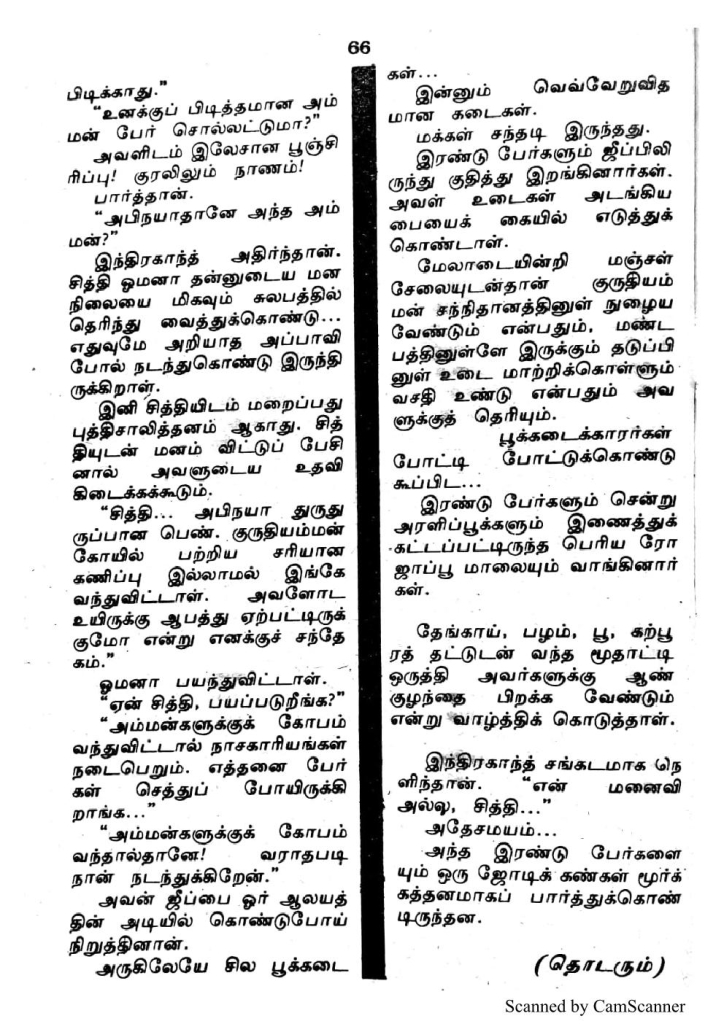 66
பிடிக்காது.”
“உனக்குப் பிடித்தமான அம்
மன் பேர் சொல்லட்டுமா?”
அவளிடம் இலேசான பூஞ்சி
ரிப்பு! குரலிலும் நாணம்!
பார்த்தான்.
“அபிநயாதானே அந்த அம்
மன்?”
இந்திரகாந்த் அதிர்ந்தான்.
சித்தி ஓமனா தன்னுடைய மன
நிலையை மிகவும் சுலபத்தில்
தெரிந்து வைத்துக்கொண்டு...
எதுவுமே அறியாத அப்பாவி
போல் நடந்துகொண்டு இருந்தி
ருக்கிறாள்.
இனி சித்தியிடம் மறைப்பது
புத்திசாலித்தனம் ஆகாது. சித்
தியுடன் மனம் விட்டுப் பேசி
னால் அவளுடைய உதவி
கிடைக்கக்கூடும்.
“சித்தி... அபிநயா துருது
ருப்பான பெண். குருதியம்மன்
கோயில் பற்றிய சரியான
கணிப்பு இல்லாமல் இங்கே
வந்துவிட்டாள். அவளோட
உயிருக்கு ஆபத்து ஏற்பட்டிருக்
குமோ என்று எனக்குச் சந்தே
கம்.”
ஓமனா பயந்துவிட்டாள்.
“ஏன் சித்தி, பயப்படுறீங்க?”
“அம்மன்களுக்குக் கோபம்
வந்துவிட்டால் நாசகாரியங்கள்
நடைபெறும். எத்தனை பேர்
கள் செத்துப் போயிருக்கி
றாங்க...”
“அம்மன்களுக்குக் கோபம்
வந்தால்தானே! வராதபடி
நான் நடந்துக்கிறேன்.”
அவன் ஜீப்பை ஓர் ஆலயத்
தின் அடியில் கொண்டுபோய்
நிறுத்தினான்.
அருகிலேயே சில பூக்கடை
கள்...
இன்னும் வெவ்வேறுவித
மான கடைகள்.
மக்கள் சந்தடி இருந்தது.
இரண்டு பேர்களும் ஜீப்பிலி
ருந்து குதித்து இறங்கினார்கள்.
அவள் உடைகள் அடங்கிய
பையைக் கையில் எடுத்துக்
கொண்டாள்.
மேலாடையின்றி மஞ்சள்
சேலையுடன்தான் குருதியம்
மன் சந்நிதானத்தினுள் நுழைய
வேண்டும் என்பதும், மண்ட
பத்தினுள்ளே இருக்கும் தடுப்பி
னுள் உடை மாற்றிக்கொள்ளும்
வசதி உண்டு என்பதும் அவ
ளுக்குத் தெரியும்.
பூக்கடைக்காரர்கள்
போட்டி போட்டுக்கொண்டு
கூப்பிட...
இரண்டு பேர்களும் சென்று
அரளிப்பூக்களும் இணைத்துக்
கட்டப்பட்டிருந்த பெரிய ரோ
ஜாப்பூ மாலையும் வாங்கினார்
கள்.
தேங்காய், பழம், பூ, கற்பூ
ரத் தட்டுடன் வந்த மூதாட்டி
ஒருத்தி அவர்களுக்கு ஆண்
குழந்தை பிறக்க வேண்டும்
என்று வாழ்த்திக் கொடுத்தாள்.
இந்திரகாந்த் சங்கடமாக நெ
ளிந்தான். “என் மனைவி
அல்ல, சித்தி...”
அதேசமயம்...
அந்த இரண்டு பேர்களை
யும் ஒரு ஜோடிக் கண்கள் மூர்க்
கத்தனமாகப் பார்த்துக்கொண்
டிருந்தன.
(தொடரும்)
Scanned by CamScanner